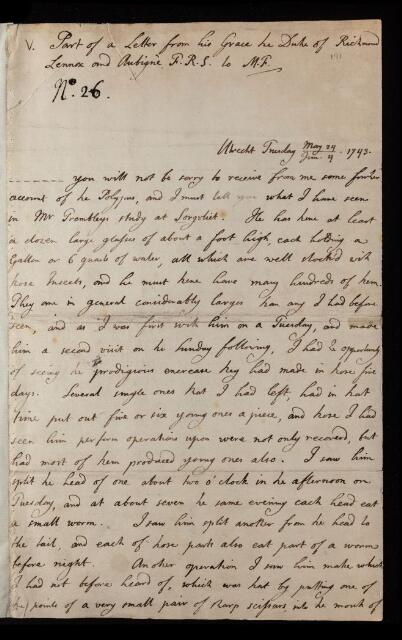 V. Part of a Letter from his Grace the Duke of Richmond
Lennox and Aubigné F.R.S. to M.F.
No. 26.
Utrecht Tuesday May 24/Jun. 4. 1743.
you will not be sorry to receive from me some further
account of the Polypus, and I must tell you what I have seen
in Mr Trembleys study at Sorgvliet. He has here at least
a dozen large glasses of about a foot high, each holding a
Gallon or 6 quarts of water, all which are well stocked with
these Insects, and he must here have many hundreds of them.
They are in general considerably larger than any I had before
seen, and as I was first with him on a Tuesday, and made
him a second visit on the Sunday following, I had the opportunity
of seeing the prodigious encrease they had made in those five
days. Several single ones that I had left, had in that
time put out five or six young ones a piece, and those I had
seen him perform operations upon were not only recovered, but
had most of them produced young ones also. I saw him
split the head of one about two o'clock in the afternoon on
Tuesday, and at about seven the same evening each head eat
a small worm. I saw him split another from the head to
the tail, and each of those parts also eat part of a worm
before night. Another operation I saw him make which
I had not before heard of, which was that by putting one of
the points of a very small pair of sharp scissars, into the mouth of